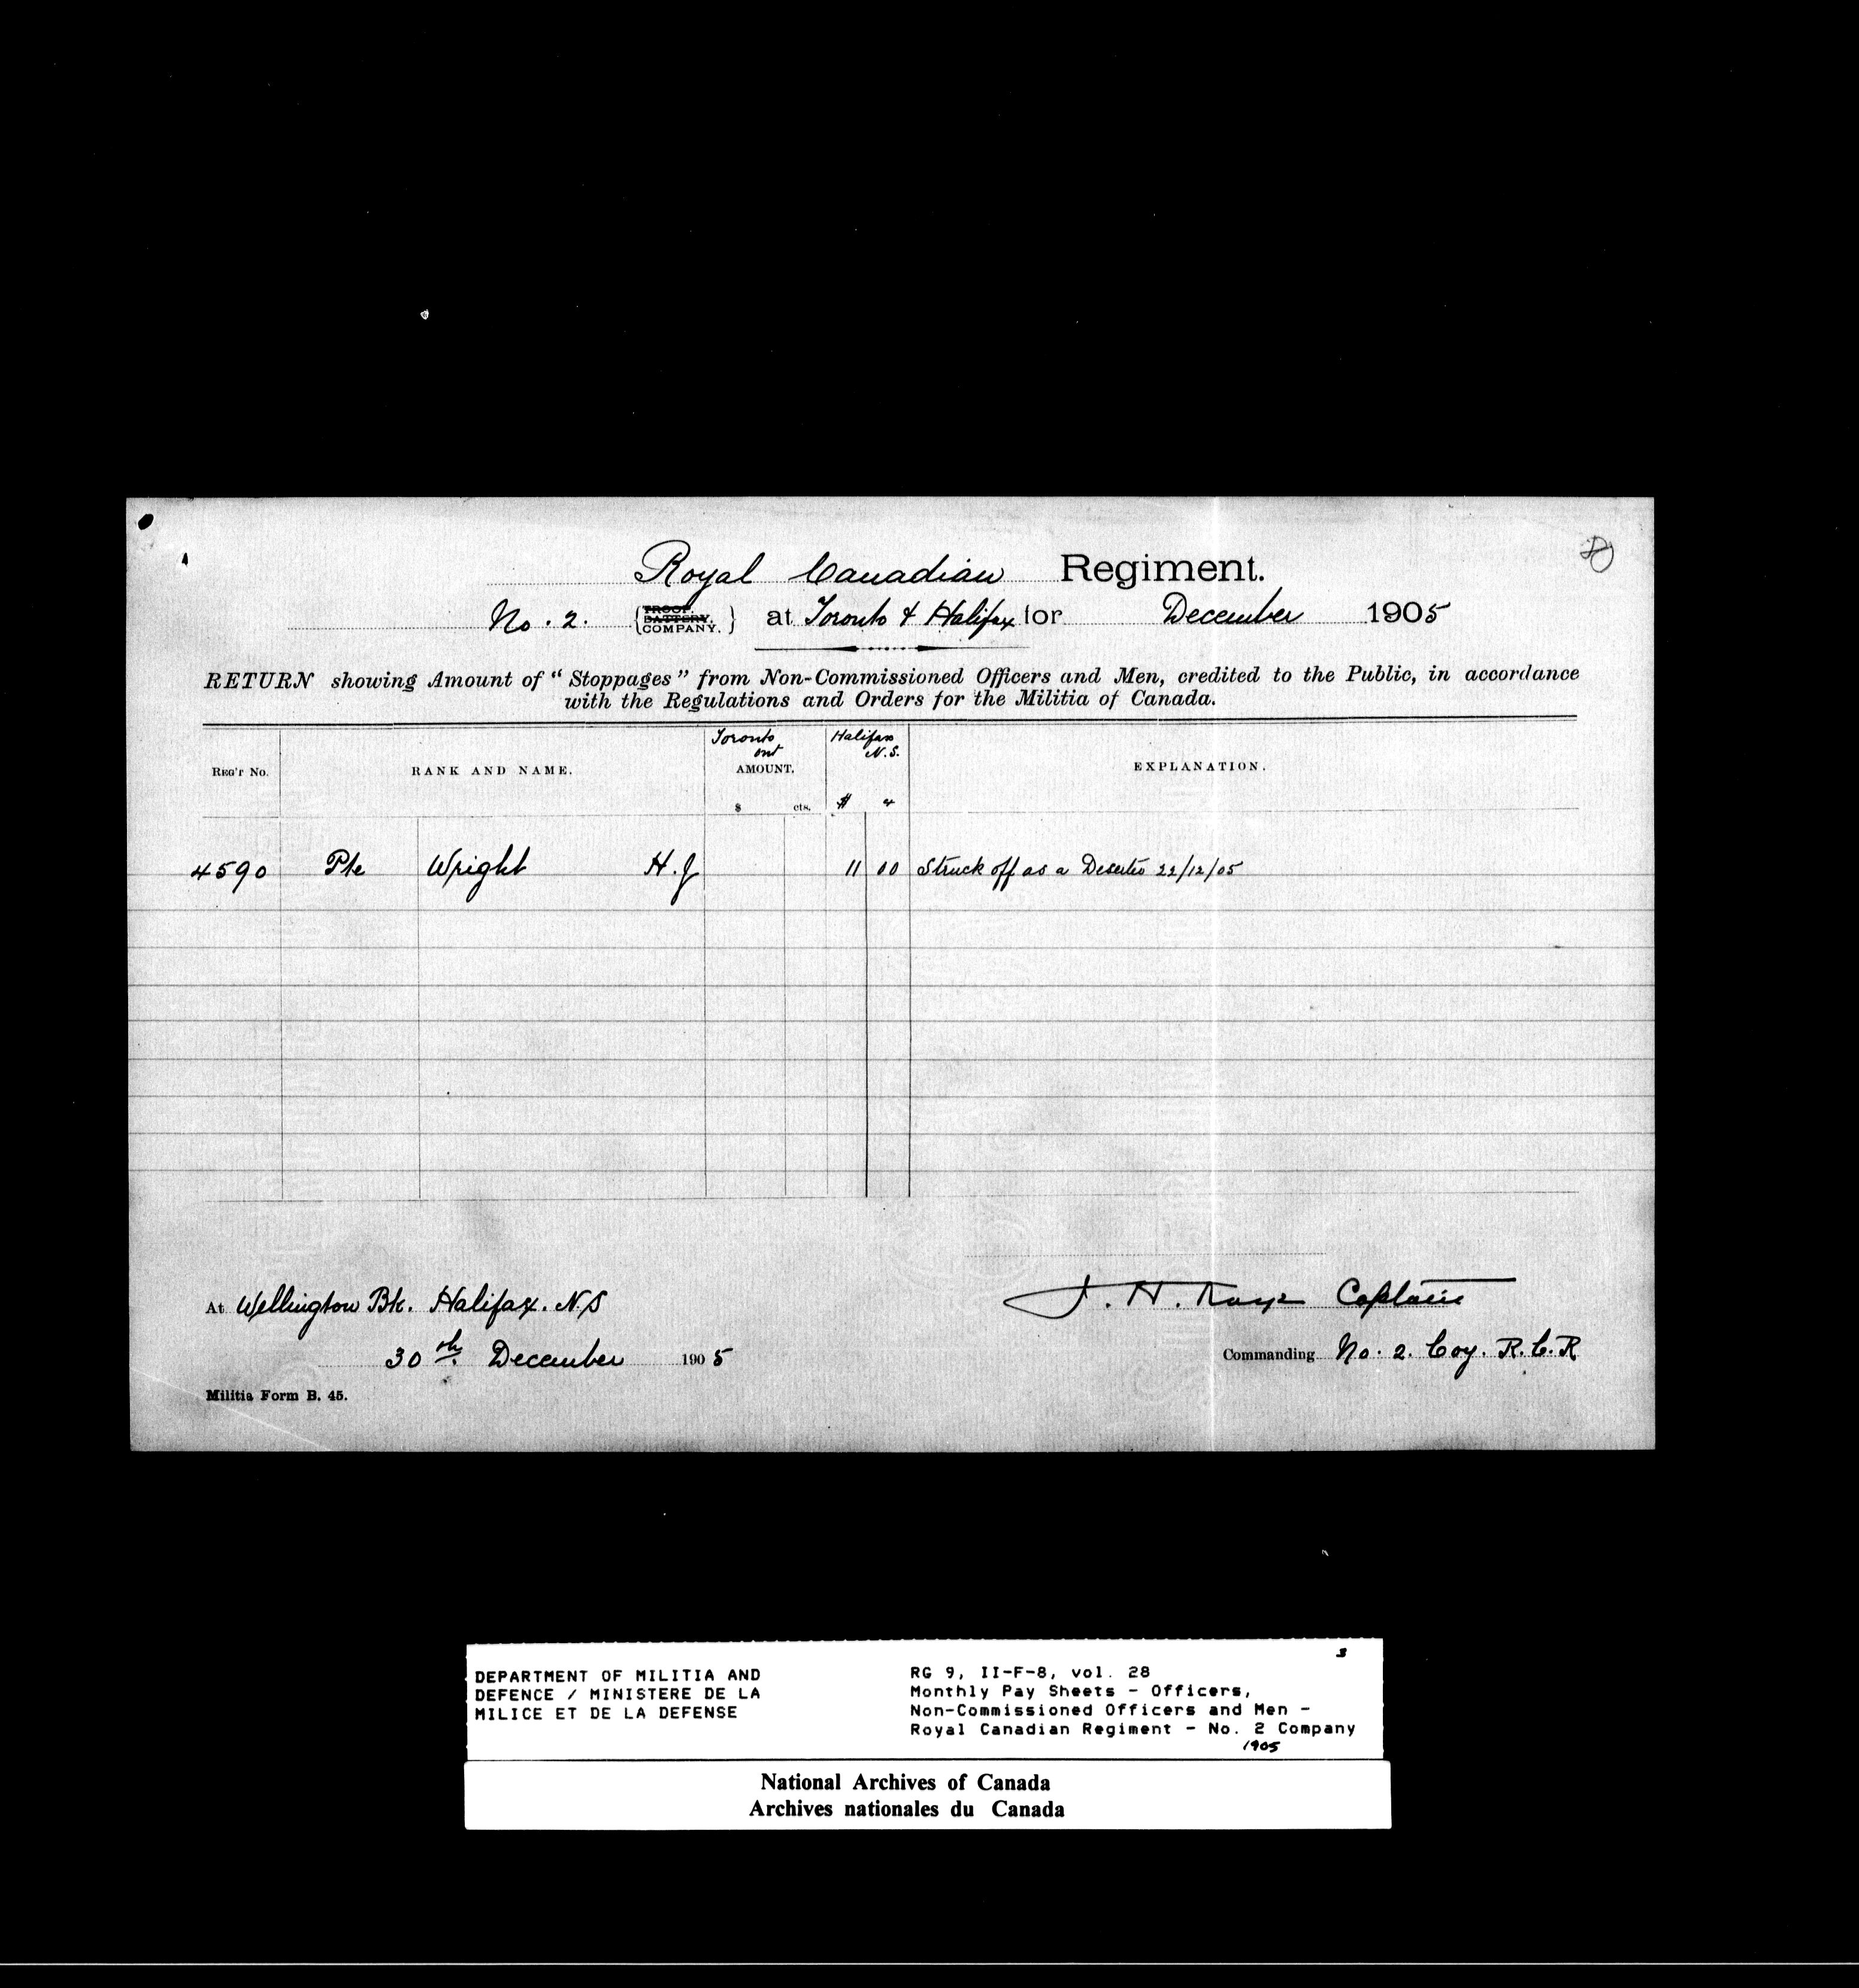 Royal Canadian Regiment.
No. 2. {TROOP. BATTERY. COMPANY.} at Toronto & Halifax for December 1905
RETURN showing Amount of "Stoppages" from Non-Commissioned Officers and Men, credited to the Public, in accordance
with the Regulations and Orders for the Militia of Canada.
Toronto Halifax
Ont N.S.
REG'T No. RANK AND NAME. AMOUNT. EXPLANATION.
$ cts. $
4590 Pte Wright H.J 11 00 Struck off as a Deserter 22/12/05
At Wellington Bk. Halifax. N.S J. H. Captain
30th December 1905 Commanding No. 2. Coy. R.C.R
Militia Form B. 45.
3
DEPARTMENT OF MILITIA AND
DEFENCE / MINISTERE DE LA
MILICE ET DE LA DEFENSE
RG 9, II-F-8, vol. 28
Monthly Pay Sheets - Officers,
Non-Commissioned Officers and Men -
Royal Canadian Regiment - No. 2 Company
1905
National Archives of Canada
Archives nationales du Canada